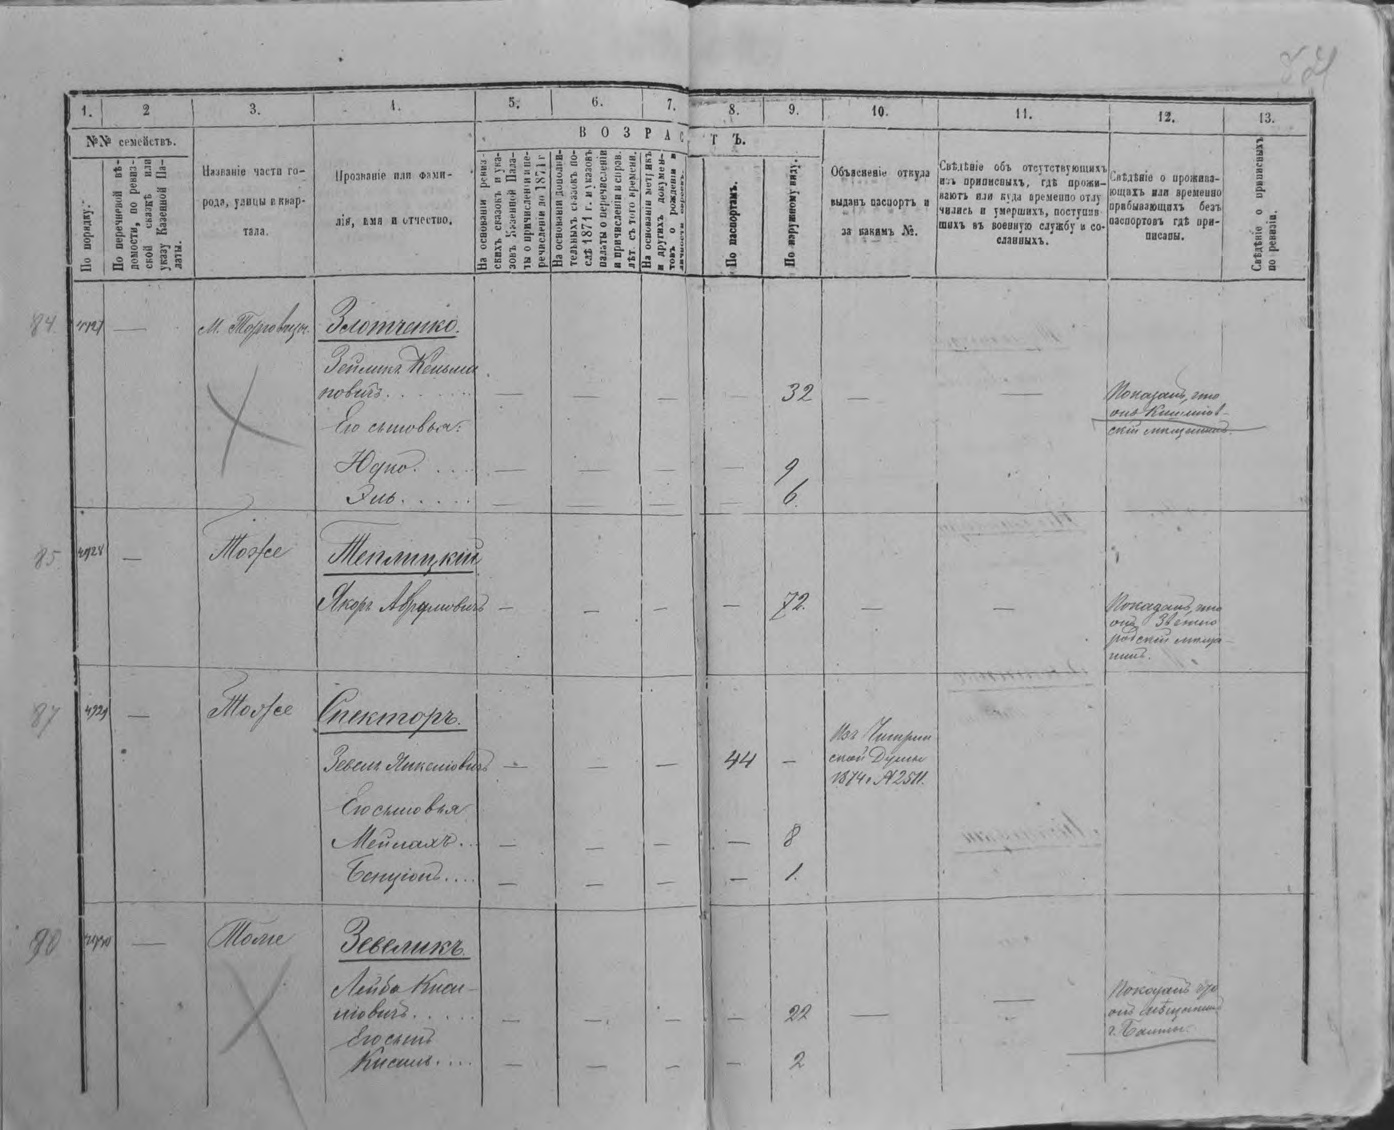 1. 2 3. 4. 5. 6. 7. 8. 9. 10. 11. 12. 13.
№№ семействъ.
По порядку.
По перечневой вѣ-
домости, по ревиз-
ской сказкѣ или
указу Казенной Па-
латы.
Названіе части го-
рода, улицы и квар-
тала.
Прозваніе или фами-
лія, имя и отчество.
ВОЗРАСТЪ.
На основаніи ревиз-
скихъ сказокъ и ука-
зовъ Казенной Пала-
ты о причисленіи и пе-
речисленіи до 1871 г
На основаніи дополни-
тельныхъ сказокъ по-
слѣ 1871 г. и указовъ
палаты о перечисленіи
и причисленіи и справ.
лѣт. съ того времени.
На основаніи метрикъ
и другихъ докумен-
товъ о рожденіи и
По паспортамъ.
По наружному виду.
Объясненіе откуда
выданъ паспортъ и
за какимъ №.
Свѣдѣніе объ отсутствующихъ
изъ приписныхъ, гдѣ прожи-
ваютъ или куда временно отлу
чились и умершихъ, поступив-
шихъ въ военную службу и со-
сланныхъ.
Свѣдѣніе о прожива-
ющихъ или временно
прибывающихъ безъ
паспортовъ гдѣ при-
писаны.
Свѣдѣніе о приписныхъ
по ревизіи.
84 4927 — М. Торговица. Злотченко.
Зейликъ Кельма
новичъ. — — — — 32 — — Показалъ, что
онъ
скій мѣщанинъ.
Его сыновья:
Юдко. — — — — 9
Эль. — — — — 6.
85 4928 — Тоже Теплицкій
Аврумовичъ — — — — 72. — — Показалъ, что
онъ Звениго
родскій мѣща-
нинъ.
87 4929 — Тоже Спекторъ.
Зевель Янкелювичъ — — — 44 — Изъ
ской Думы
1874 г № 2511.
Его сыновья
Мейлахъ. — — — — 8
Бенціонъ. — — — — 1.
90 4930 — Тоже Зевеликъ.
Лейба Киси-
люовичъ. — — — — 22 — — Показалъ что
онъ мѣщанинъ
г. Балты.
Его сынъ
Кисиль. — — — — 2